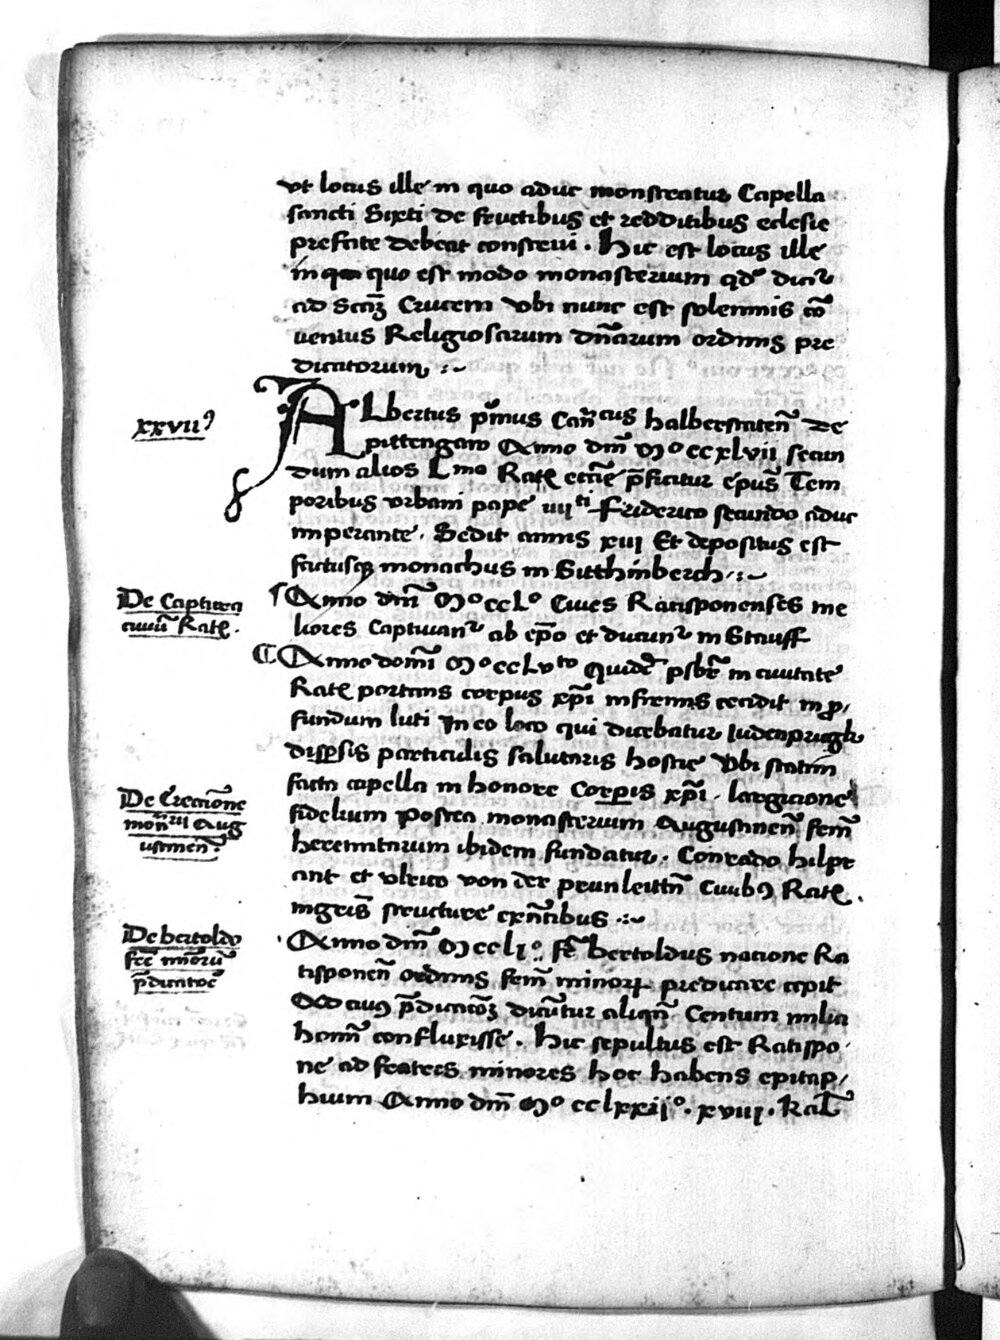 vt locus ille in quo aduc monstratur Capella
sancti Sixti de fructibus et redditibus eclesie
prefate debeat construi . Hic est locus ille
in quo est modo monasterium qd̄ dicit᷑
ad Scāȝ Crucem vbi nunc est solennis cō
uentus Religiosarum dn̄arum ordinis pre
dicatorum :~
xxvii⁹
ALbertus pͥmus Can̄cus halberstaten̄ de
pittengaw Anno dm̄ Mº ccxlvii secun
dum alios Lmo Ratꝭ ecc̄ie p̄ficitur ep̄us Tem
poribus vrbani pape iiiiti Friderico secundo aduc
imperante . Sedit annis xiii Et depositus est
factusqꝫ monachus in Sitthinberch :~
De Captiuea
ciuiū Ratꝭ .
¶ Anno dm̄ Mº ccLº Ciues Ratisponenses me
liores Captiuant᷑ ab ep̄o et ducunt᷑ in Stauff
¶ Anno domī Mº ccLvto Quidē psbr̄ in ciuitate
Ratꝭ portans corpus xp̄i infirmis cecidit in ꝓ/
fundum luti In eo loco qui dicebatur Iudenprugk
disp̄sis particulis salutaris hostie Vbi statim
facta capella in honore Corꝑis xp̄i . largicione
De Ereccione
mon̄rii Aug
ustinen̄ .
fidelium Postea monasterium Augustinen̄ frm̄
heremitarum ibidem fundatur . Conrado hilpr
ant et vlrico von der prunleittn̄ Ciuibꝰ Ratꝭ .
ingeris̄ structure exn̄tibus :~
De bertoldo
fr̄e mīorū
p̄dicatoē
Anno dm̄ Mccliº . Fr̄ Bertoldus nacione Ra
tisponen̄ ordinis frm̄ minorꝝ predicare cepit
Ad cuiꝰ p̄dicacōȝ dicūtur aliqn̄ Centum milia
homī confluxisse . Hic sepultus est Ratispo
ne ad fratres minores hoc habens epitap/
hium Anno dm̄ Mº cclxxiiº . xviii . Kal̄